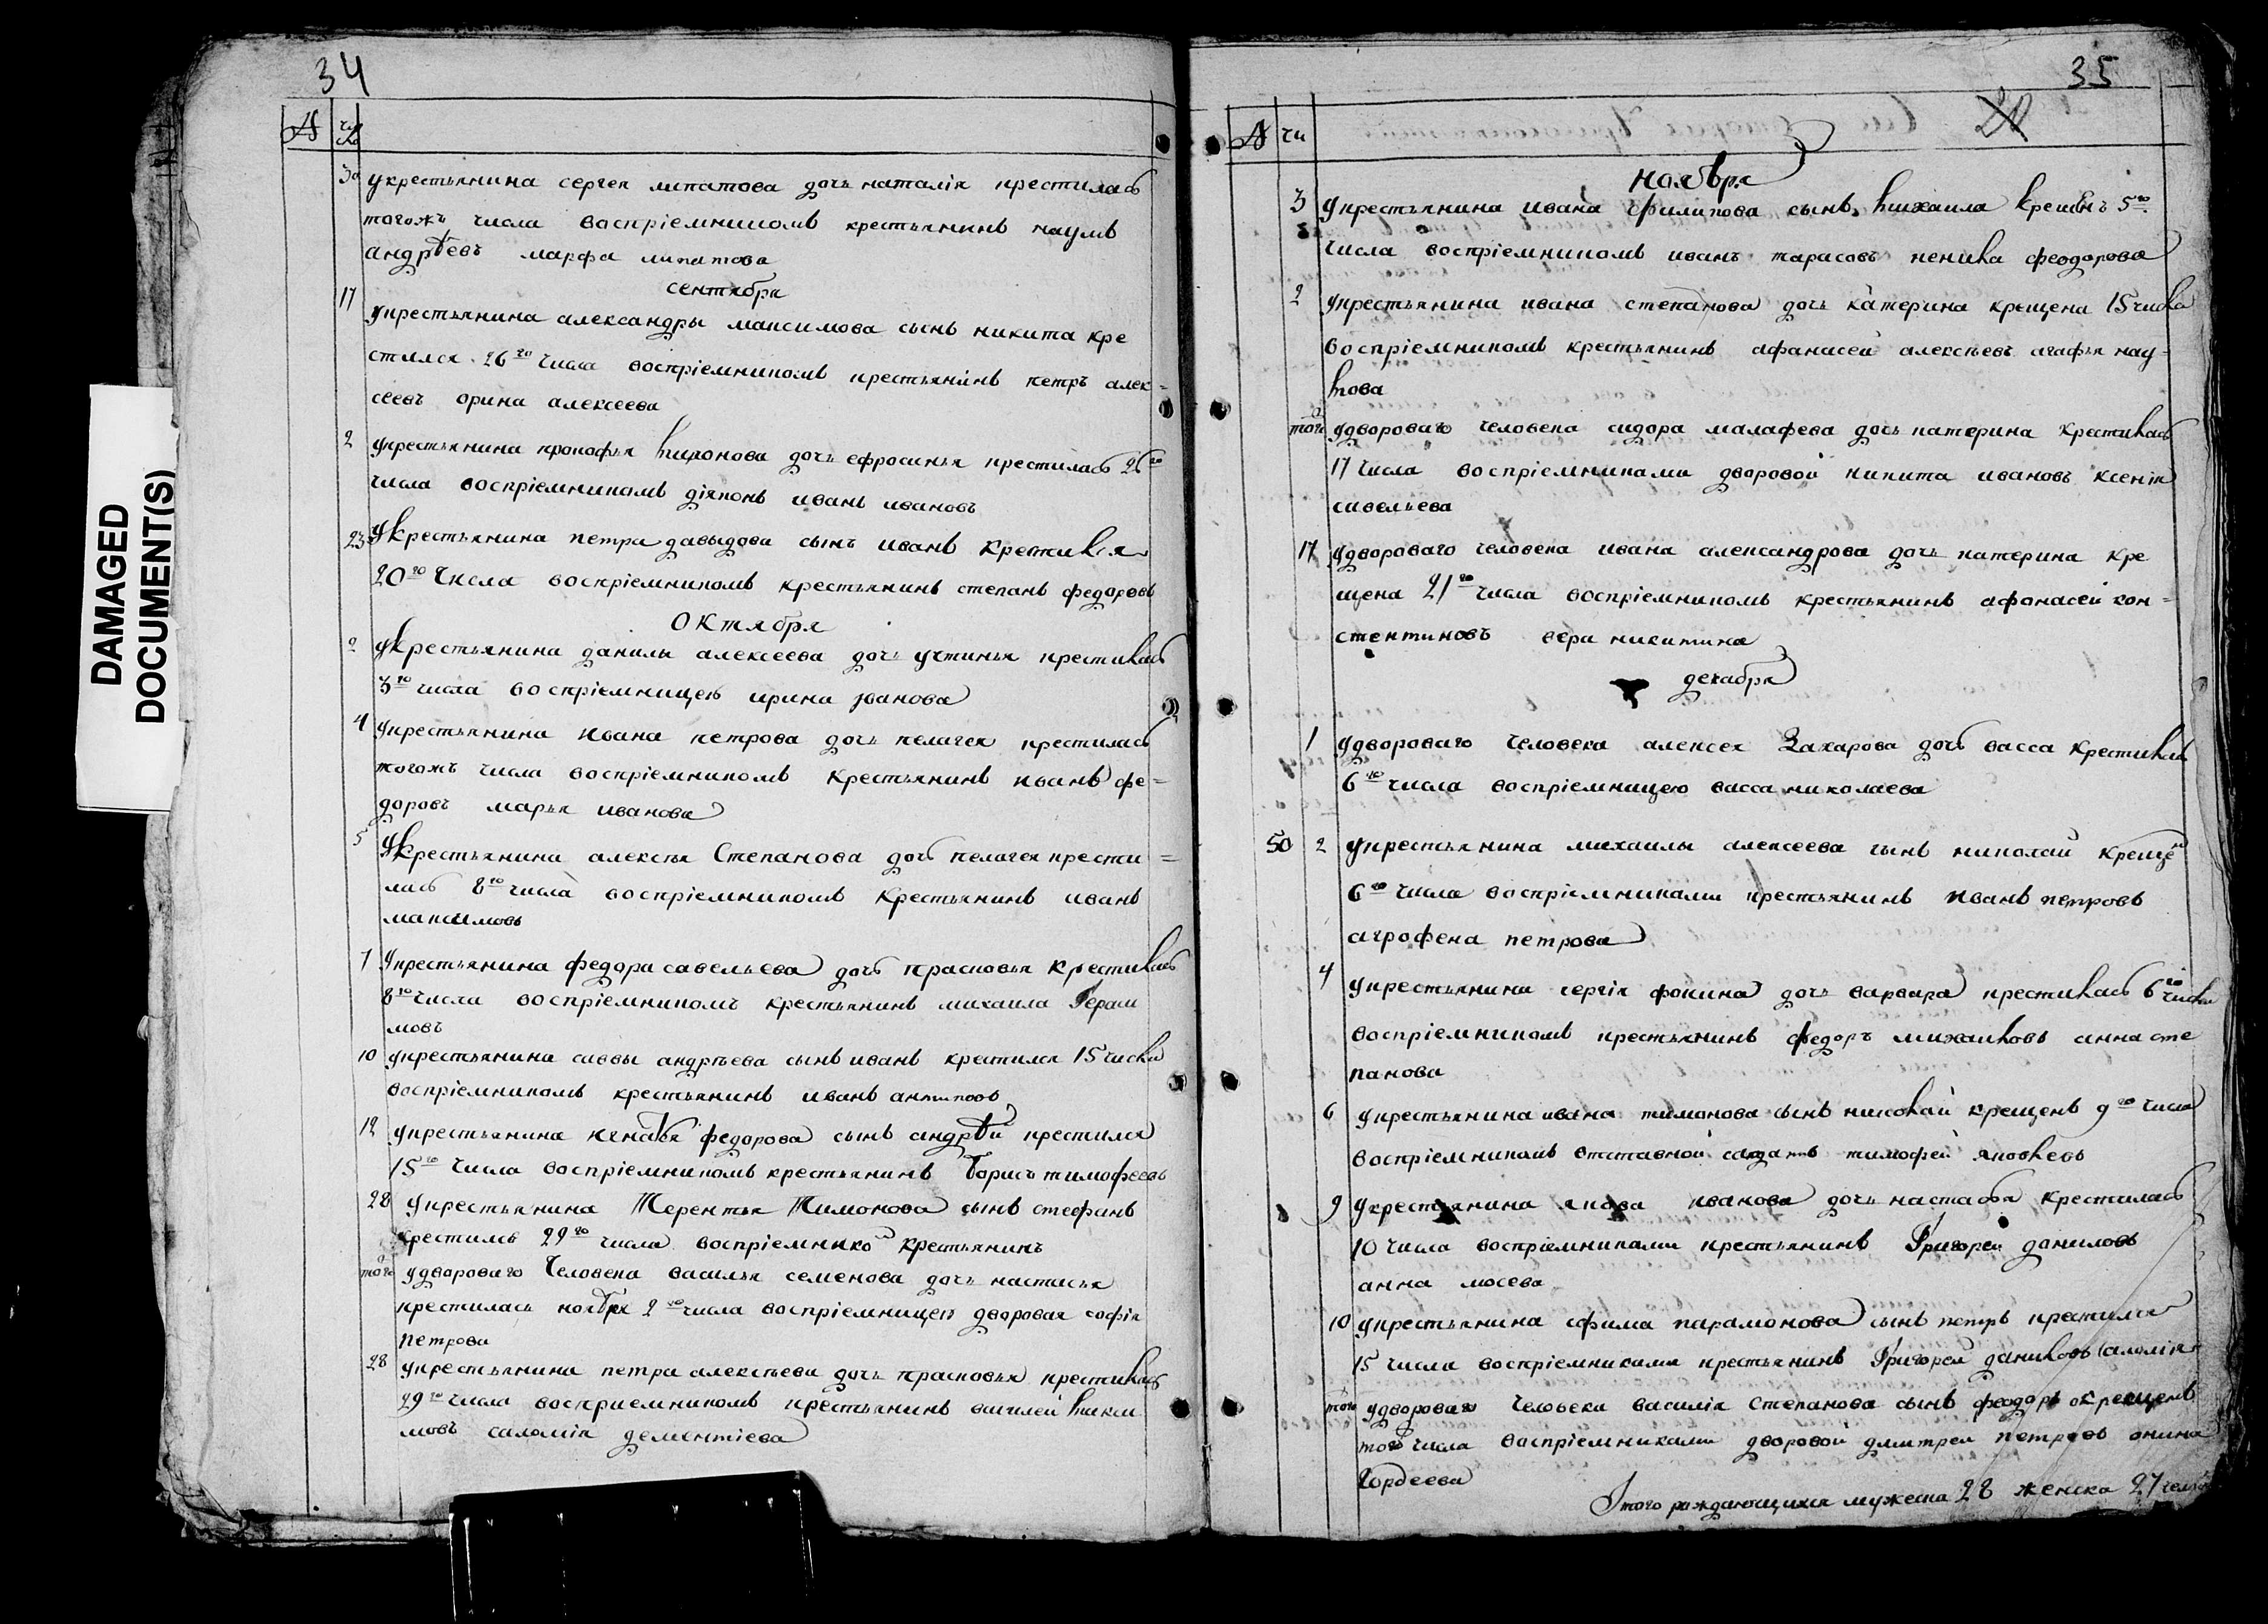 34
№ чи
сло
30 укрестьянина сергея липатова дочь наталія крестилась
тогожъ числа воспріемникомъ крестьянинъ наумъ
андрѣевъ марфа липатова
сентября
17 укрестьянина александры максимова сынъ никита кре
стился 26го числа воспріемникомъ крестьянинъ петръ алек=
сеевъ орина алексеева
2 укрестьянина прокофья дочь ефросинья крестилась 26го
числа воспріемникомъ діяконъ иванъ ивановъ
23 укрестьянина петра давыдова сынъ иванъ крестился
20го числа воспріемникомъ крестьянинъ степанъ федоровъ
Октября
2 укрестьянина данилы алексеева дочь устинья крестилась
3го числа воспріемницею ирина іванова
4 укрестьянина ивана петрова дочь пелагея крестилась
тогожъ числа воспріемникомъ крестьянинъ иванъ фе=
доровъ марья иванова
5 укрестьянина алексѣя Степанова дочь пелагея крести=
лась 8го числа воспріемникомъ крестьянинъ иванъ
максимовъ
7 укрестьянина федора савельева дочь прасковья крестилась
8го числа воспріемникомъ крестьянинъ михаила Гераси
мовъ
10 укрестьянина саввы андрѣева сынъ иванъ крестился 15 числа
воспріемникомъ крестьянинъ иванъ антиповъ
12 укрестьянина федорова сынъ андрѣй крестился
15го числа воспріемникомъ крестьянинъ борисъ тимофеевъ
28 укрестьянина Терентья Тимонова сынъ стефанъ
крестилсь 29го числа воспріемникомъ крестьянинъ
того удвороваго человека василья семенова дочь настасья
крестилась ноября 2го числа воспріемницею дворовая софія
петрова
28 укрестьянина петра алексѣева дочь прасковья крестилась
29го числа восприемникомъ крестьянинъ василей макси
мовъ саломія дементіева
35
20
№ чи
ноября
3 укрестьянина ивана филипова сынъ михаила крещенъ 5го
числа воспріемникомъ иванъ тарасовъ феодорова
2 укрестьянина ивана степанова дочь катерина крещена 15 числа
воспріемникомъ крестьянинъ афанасей алексѣевъ агафья нау=
мова
того удвороваго человека сидора малафева дочь катерина крестилась
17 числа воспріемниками дворовой никита ивановъ ксенія
савельева
17 удвороваго человека ивана александрова дочь катерина кре
щена 21го числа воспріемникомъ крестьянинъ афонасей кон=
стентиновъ вера никитина
декабря
1 удвороваго человека алексея Захарова дочь васса крестилась
6го числа воспріемницею васса николаева
50 2 укрестьянина михаилы алексеева сынъ николай крещенъ
6го числа воспріемниками крестьянинъ иванъ петровъ
агрофена петрова
4 укрестьянина сергія фокина дочь варвара крестилась 6го числа
воспріемникомъ крестьянинъ федоръ михаиловъ анна сте
панова
6 укрестьянина ивана тимонова сынъ николай крещенъ 9го числа
воспріемникомъ отставной салдатъ тимофей яковлевъ
9 укрестьянина якова иванова дочь настасья крестилась
10 числа воспріемниками крестьянинъ Григорей даниловъ
анна мосева
10 укрестьянина ефима парамонова сынъ петръ крестился
15 числа воспріемниками крестьянинъ Григорей даниловъ саломія
того удвороваго человека василія Степанова сынъ феодоръ окрещенъ
того числа воспріемниками дворовой дмитрей петровъ
Гордеева
Итого раждающихся мужеска 28 женска 27 челов
DAMAGED
DOCUMENT(S)